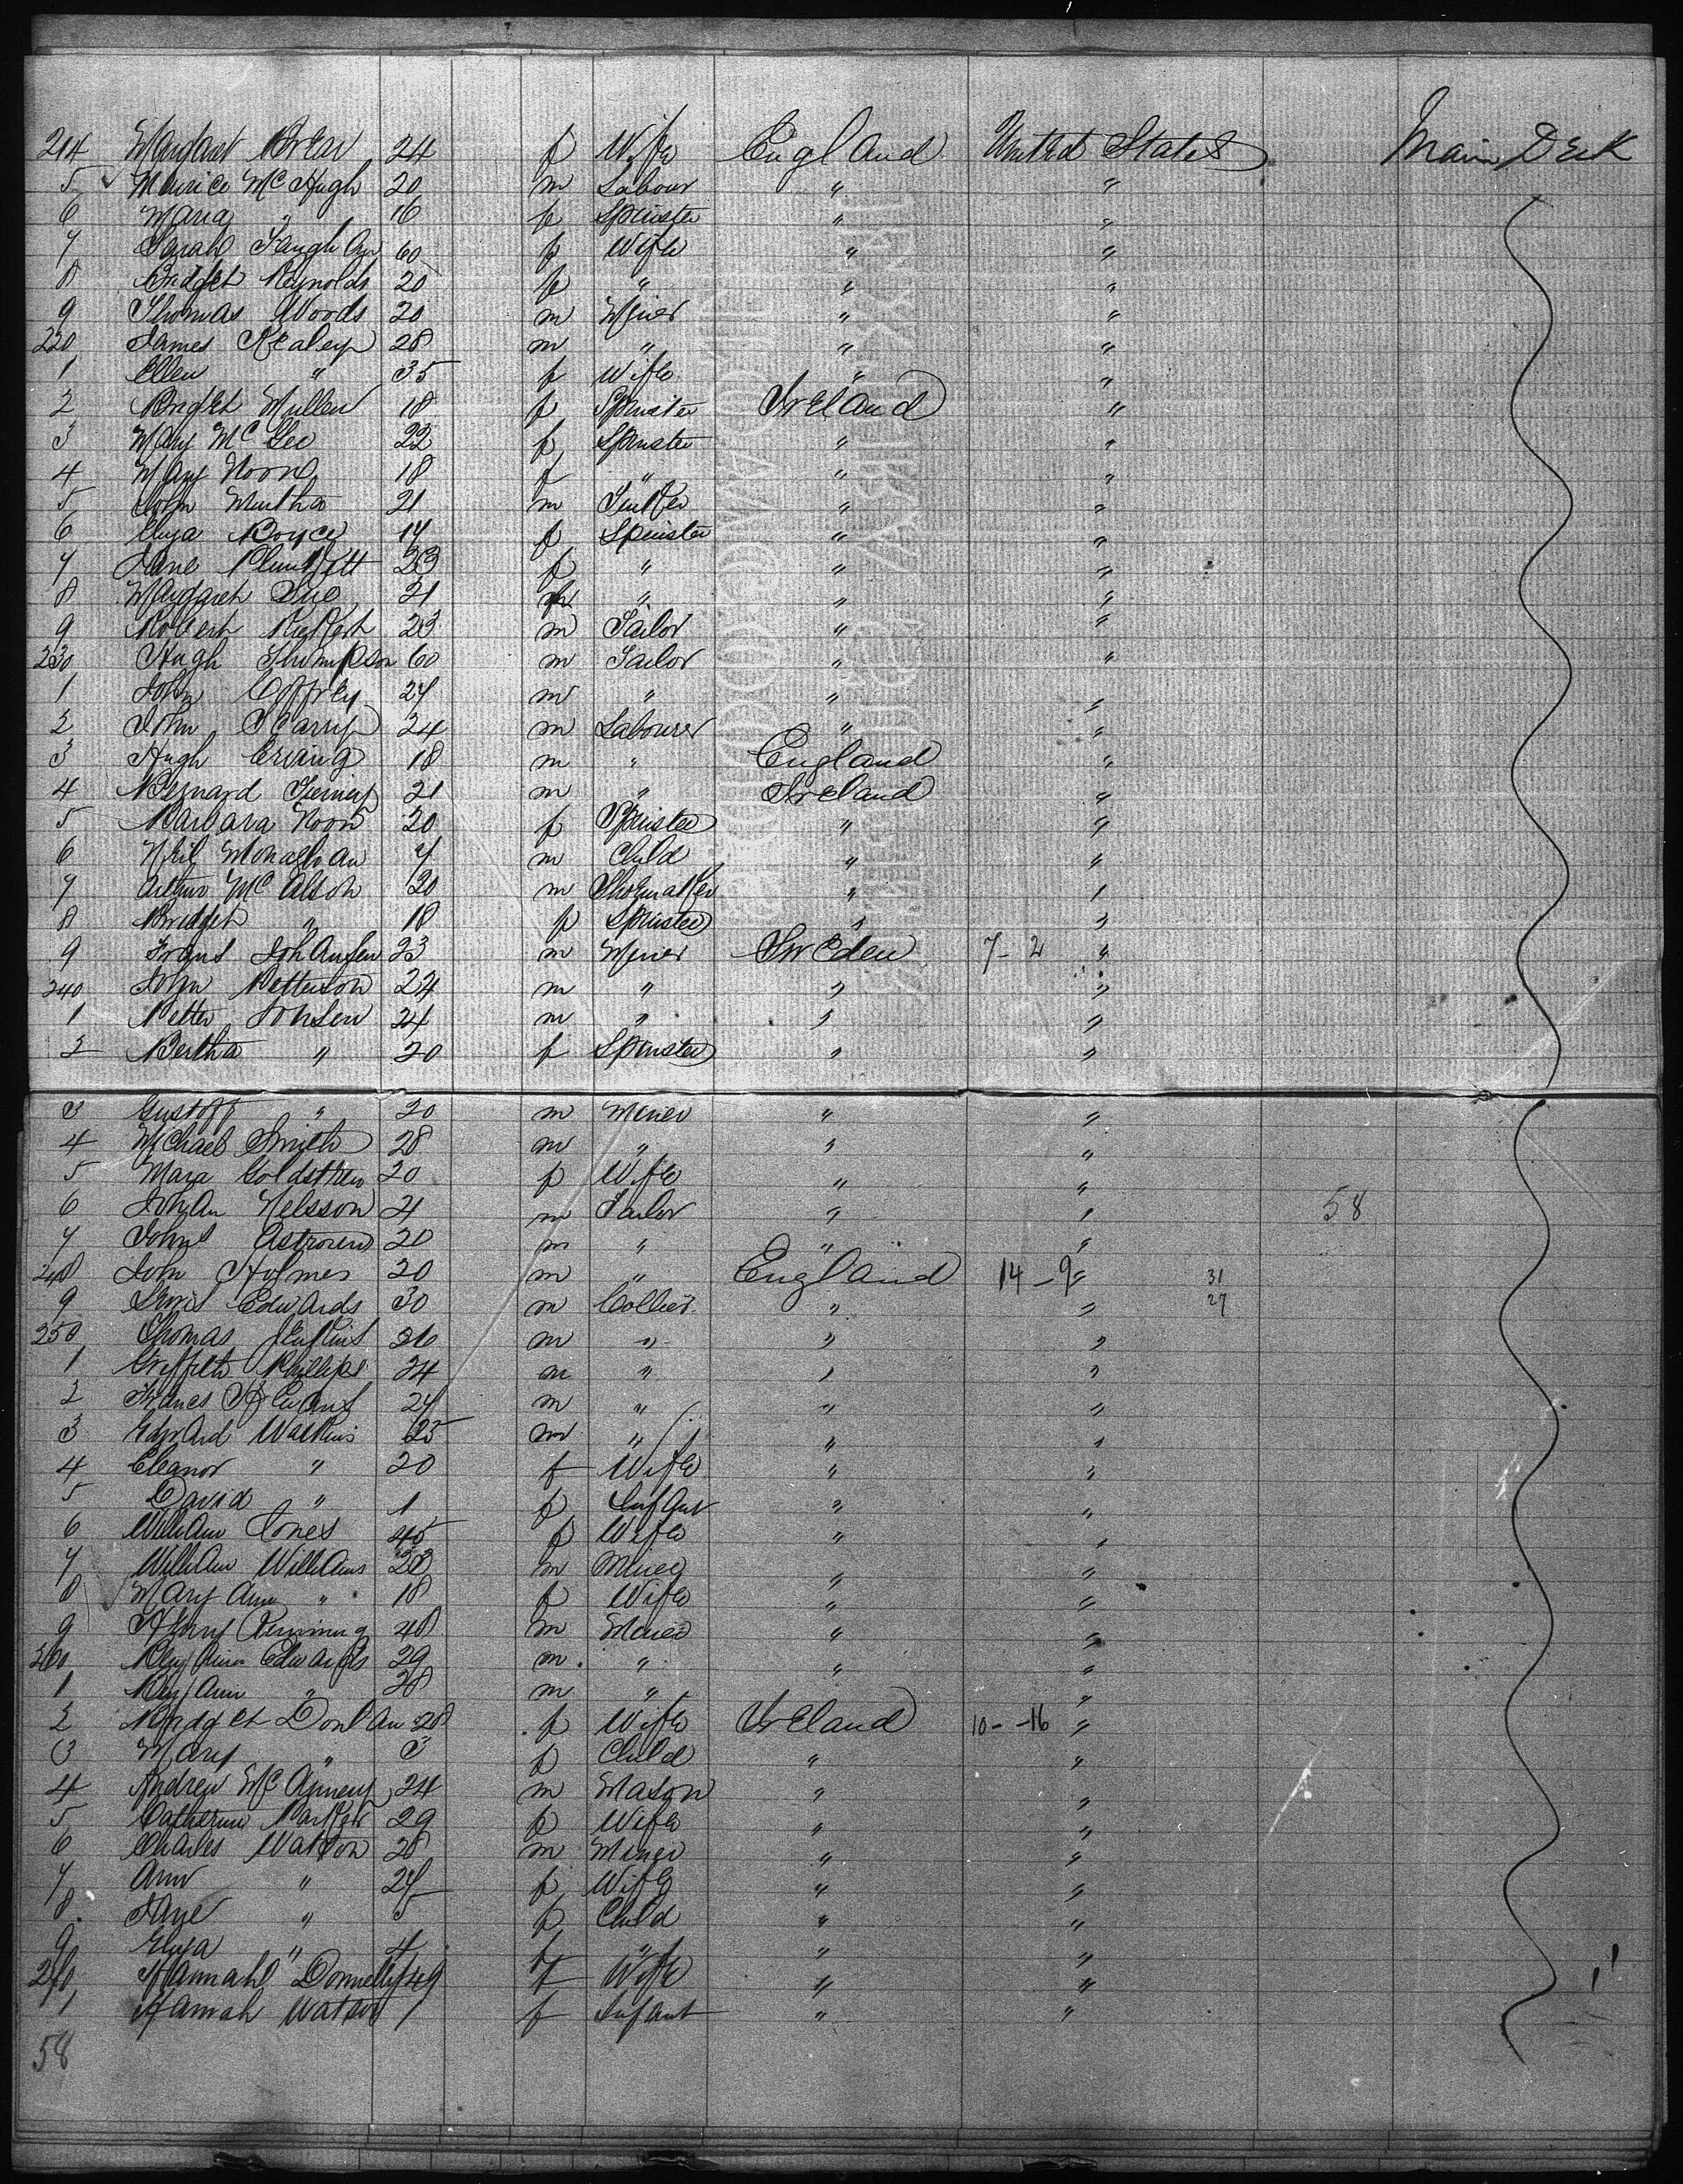 214 Margaret Brear 24 f Wife England United States Main Deck
5 Maurice McHugh 20 m Labour " "
6 Maria " 16 f Spinster " "
7 Sarah 60 f Wife " "
8 Bridget Reynolds 20 f " " "
9 Thomas Woods 20 m Miner " "
220 James Kealey 28 m " " "
1 Ellen " 35 f Wife " "
2 Bridget Mullen 18 f Spinster Ireland "
3 Mary McGee 22 f Spinster " "
4 Mary Noon 18 f " " "
5 John Murtha 21 m " "
6 Eliza Boyce 14 f Spinster " "
7 Jane Plunkett 23 f " " "
8 Margaret 21 f " " "
9 Robert 23 m Sailor " "
230 Hugh Thompson 60 m Sailor " "
1 John Coffrey 27 m " " "
2 John Scarry 24 m Labourer " "
3 Hugh Erving 18 m " England "
4 Bernard Tierney 21 m " Ireland "
5 Barbara Noon 20 f Spinster " "
6 Neil Monaghan 7 m Child " "
7 Arthur McAlson 20 m Shoemaker " "
8 Bridget " 18 f Spinster " "
9 Frans Johansen 23 m Miner Sweden 7-2 "
240 John Petterson 24 m " " "
1 Petter Johnsen 24 m " " "
2 Bertha " 20 f Spinster " "
3 Gustoff " 20 m Miner " "
4 Michael Smith 28 m " " "
5 Mara Goldstren 20 f Wife " "
6 Johan Nelsson 21 m Tailor " " 58
7 Johns Astroem 20 m " " "
248 John Holmes 20 m " England 14-9 " 31
9 Lewis Edwards 30 m Collier " " 27
250 Thomas Jenkins 26 m " " "
1 Griffith Phillips 24 m " " "
2 Frances H Evans 24 m " " "
3 Edward Watkins 25 m " " "
4 Eleanor " 20 f Wife " "
5 David " 1 f Infant " "
6 William Jones 45 f Wife " "
7 William Williams 23 m Miner " "
8 Mary Ann " 18 f Wife " "
9 Henry 48 m Miner " "
260 Benjamin Edwards 29 m " " "
1 Benjamin " 28 m " " "
2 Bridget Donlan 28 f Wife Ireland 10--16 "
3 Mary " 3 f Child " "
4 Andrew McAnneny 24 m Mason " "
5 Catherine Parker 29 f Wife " "
6 Charles Watson 28 m Miner " "
7 Ann " 27 f Wife " "
8 Jane " 5 f Child " "
9 Eliza " 4 f " " "
270 Hannah Donnelly 49 f Wife " "
1 Hannah Watson 1 f Infant " "
58